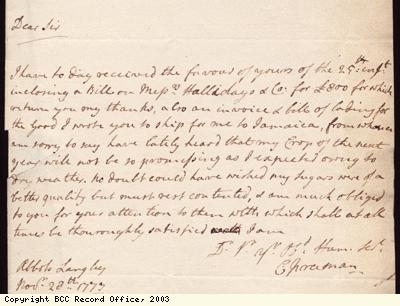 Dear Sir
I have to day received the favour of yours of the 25th. inst.
inclosing a Bill on Messrs. Hallidays & Co. for £800 for which
return you my thanks, also an invoice & bill of lading for
the Good I wrote you to ship for me to Jamaica, from whence
am sorry to say have lately heard that my Crop of the next
year will not be so promissing as I expected owing to
dry weather. No doubt could have wished my Sugars were of a
better quality but must rest contented, & am much obliged
to you for your attention to them with which shall at all
times be thouroughly satisfied I am
Dr. Sr.
C Freeman
Abbots Langley
Novr. 28th. 1773
Copyright BCC Record Office, 2003